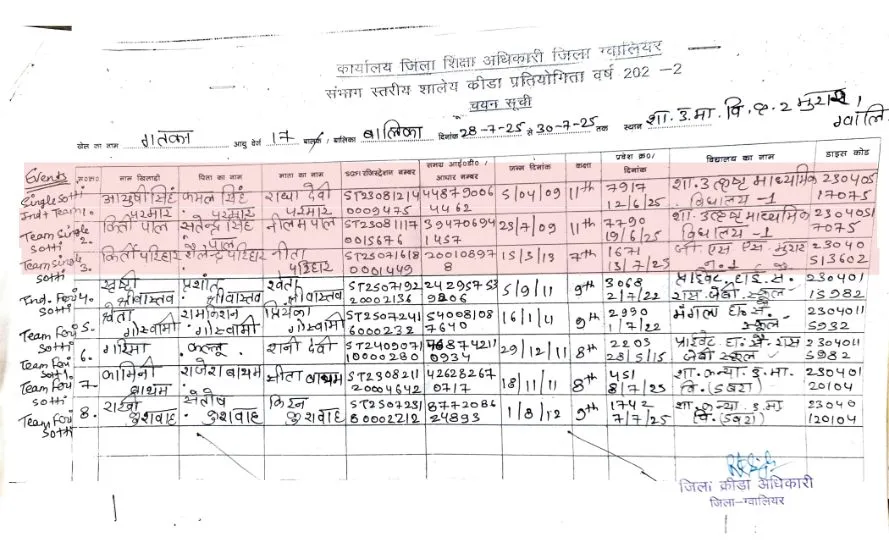 कार्यालय जिला शिक्षा अधिकारी जिला ग्वालियर
संभाग स्तरीय शालेय क्रीडा प्रतियोगिता वर्ष 202 -2
चयन सूची
खेल का नाम गतका आयु वर्ग 17 बालक/बालिका बालिका दिनांक 28-7-25 से 30-7-25 तक स्थान शा. उ. मा. वि. क्र. 2 मुरार, ग्वालि
Events स०क्र० नाम खिलाडी पिता का नाम माता का नाम SGFI रजिस्ट्रेशन नम्बर समग्र आई०डी०/ आधार नम्बर जन्म दिनांक कक्षा प्रवेश क्र०/ दिनांक विद्यालय का नाम डाइस कोड
Single Sotti आयुषी सिंह कमल सिंह राधा देवी ST23081214 44879006 5/04/09 11th 7917 शा. उत्कृष्ट माध्यमिक 230405
Ind+Team 1. परमार परमार परमार 0009475 4462 12/6/25 विद्यालय -1 17075
Team Single किर्ती पाल सतेन्द्र सिंह नीलम पाल ST23081117 39470694 23/7/09 11th 7790 शा. उत्कृष्ट माध्यमिक 2304051
Sotti 2. पाल 0015676 1457 19/6/25 विद्यालय -1 7075
Team Single किर्ती परिहार शैलेन्द्र परिहार नीता ST25071618 20010897 15/3/13 7th 1671 जी एस एस मुरार 23040
Sotti 3. परिहार 0001449 8 13/7/25 न. 1 513602
Ind. Fari 4. प्रशांत श्वेता ST2507192 24295753 5/9/11 9th 3068 प्राइवेट हाई. स. 230401
Sotti श्रीवास्तव श्रीवास्तव श्रीवास्तव 20002136 9206 2/7/22 स्कूल 15982
Team Fari 5. प्रियंका ST2507241 54008108 16/1/11 9th 2990 मंगला 2304011
Sotti गोस्वामी गोस्वामी गोस्वामी 6000232 7640 1/7/22 स्कूल 5932
Team Fari 6. गरिमा कल्लू रानी देवी ST2409071 768874211 29/12/11 8th 2203 प्राइवेट 2304011
Sotti 10000280 0934 28/5/15 स्कूल 5982
Team Fari 7. कामिनी राजेश बाथम नीता बाथम ST2308211 42628267 18/11/11 8th 451 शा. कन्या उ. मा. 230401
Sotti बाथम 20004642 0717 8/7/25 वि. (डबरा) 20104
Team Fari 8. राखी संतोष किरन ST2507231 8772086 1/8/12 9th 1742 शा. कन्या उ. मा 23040
Sotti कुशवाह कुशवाह कुशवाह 80002212 24893 7/7/25 वि. (डबरा) 120104
जिला क्रीडा अधिकारी
जिला-ग्वालियर